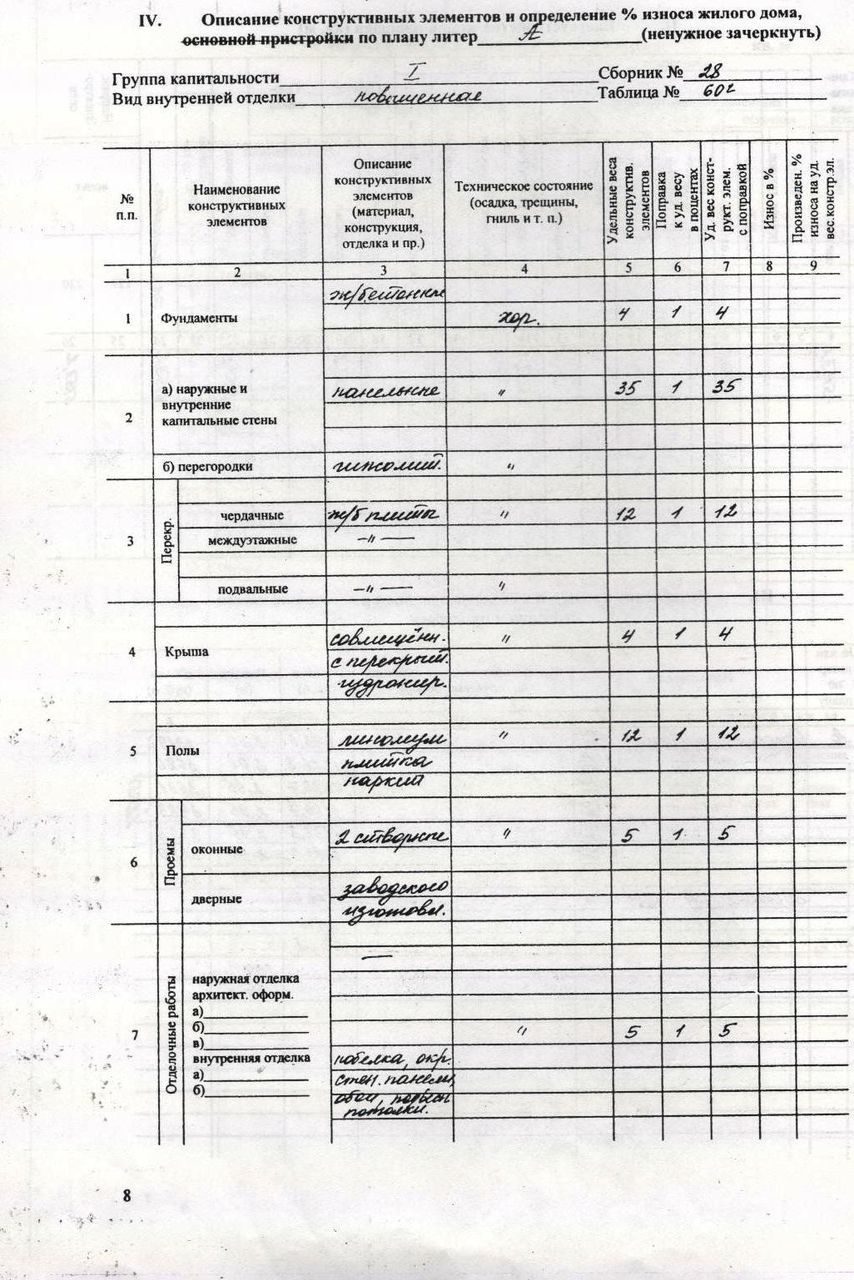 IV. Описание конструктивных элементов и определение % износа жилого дома,
основной пристройки по плану литер А (ненужное зачеркнуть)
Группа капитальности I Сборник № 28
Вид внутренней отделки повышенная Таблица № 60г
№ п.п.
Наименование конструктивных элементов
Описание конструктивных элементов (материал, конструкция, отделка и пр.)
Техническое состояние (осадка, трещины, гниль и т. п.)
Удельные веса конструктив. элементов
Поправка к уд. весу в поцентах
Уд. вес конст-рукт. элем. с поправкой
Износ в %
Произведен. % износа на уд. вес констр эл.
1 2 3 4 5 6 7 8 9
ж/бетонные
1 Фундаменты хор. 4 1 4
2 а) наружные и внутренние капитальные стены панельные " 35 1 35
б) перегородки "
3 Перекр.
чердачные ж/б плиты " 12 1 12
междуэтажные —"—
подвальные —"— "
4 Крыша совмещённ. " 4 1 4
с перекрыт.
гидроизер.
5 Полы линолиум " 12 1 12
плитка
паркет
6 Проемы
оконные 2 створные " 5 1 5
дверные заводского
изготовл.
7 Отделочные работы
—
наружная отделка
архитект. оформ.
а)
б) " 5 1 5
в)
внутренняя отделка побелка, окр.
а) стен. панели,
б) обои,
потолки.
8